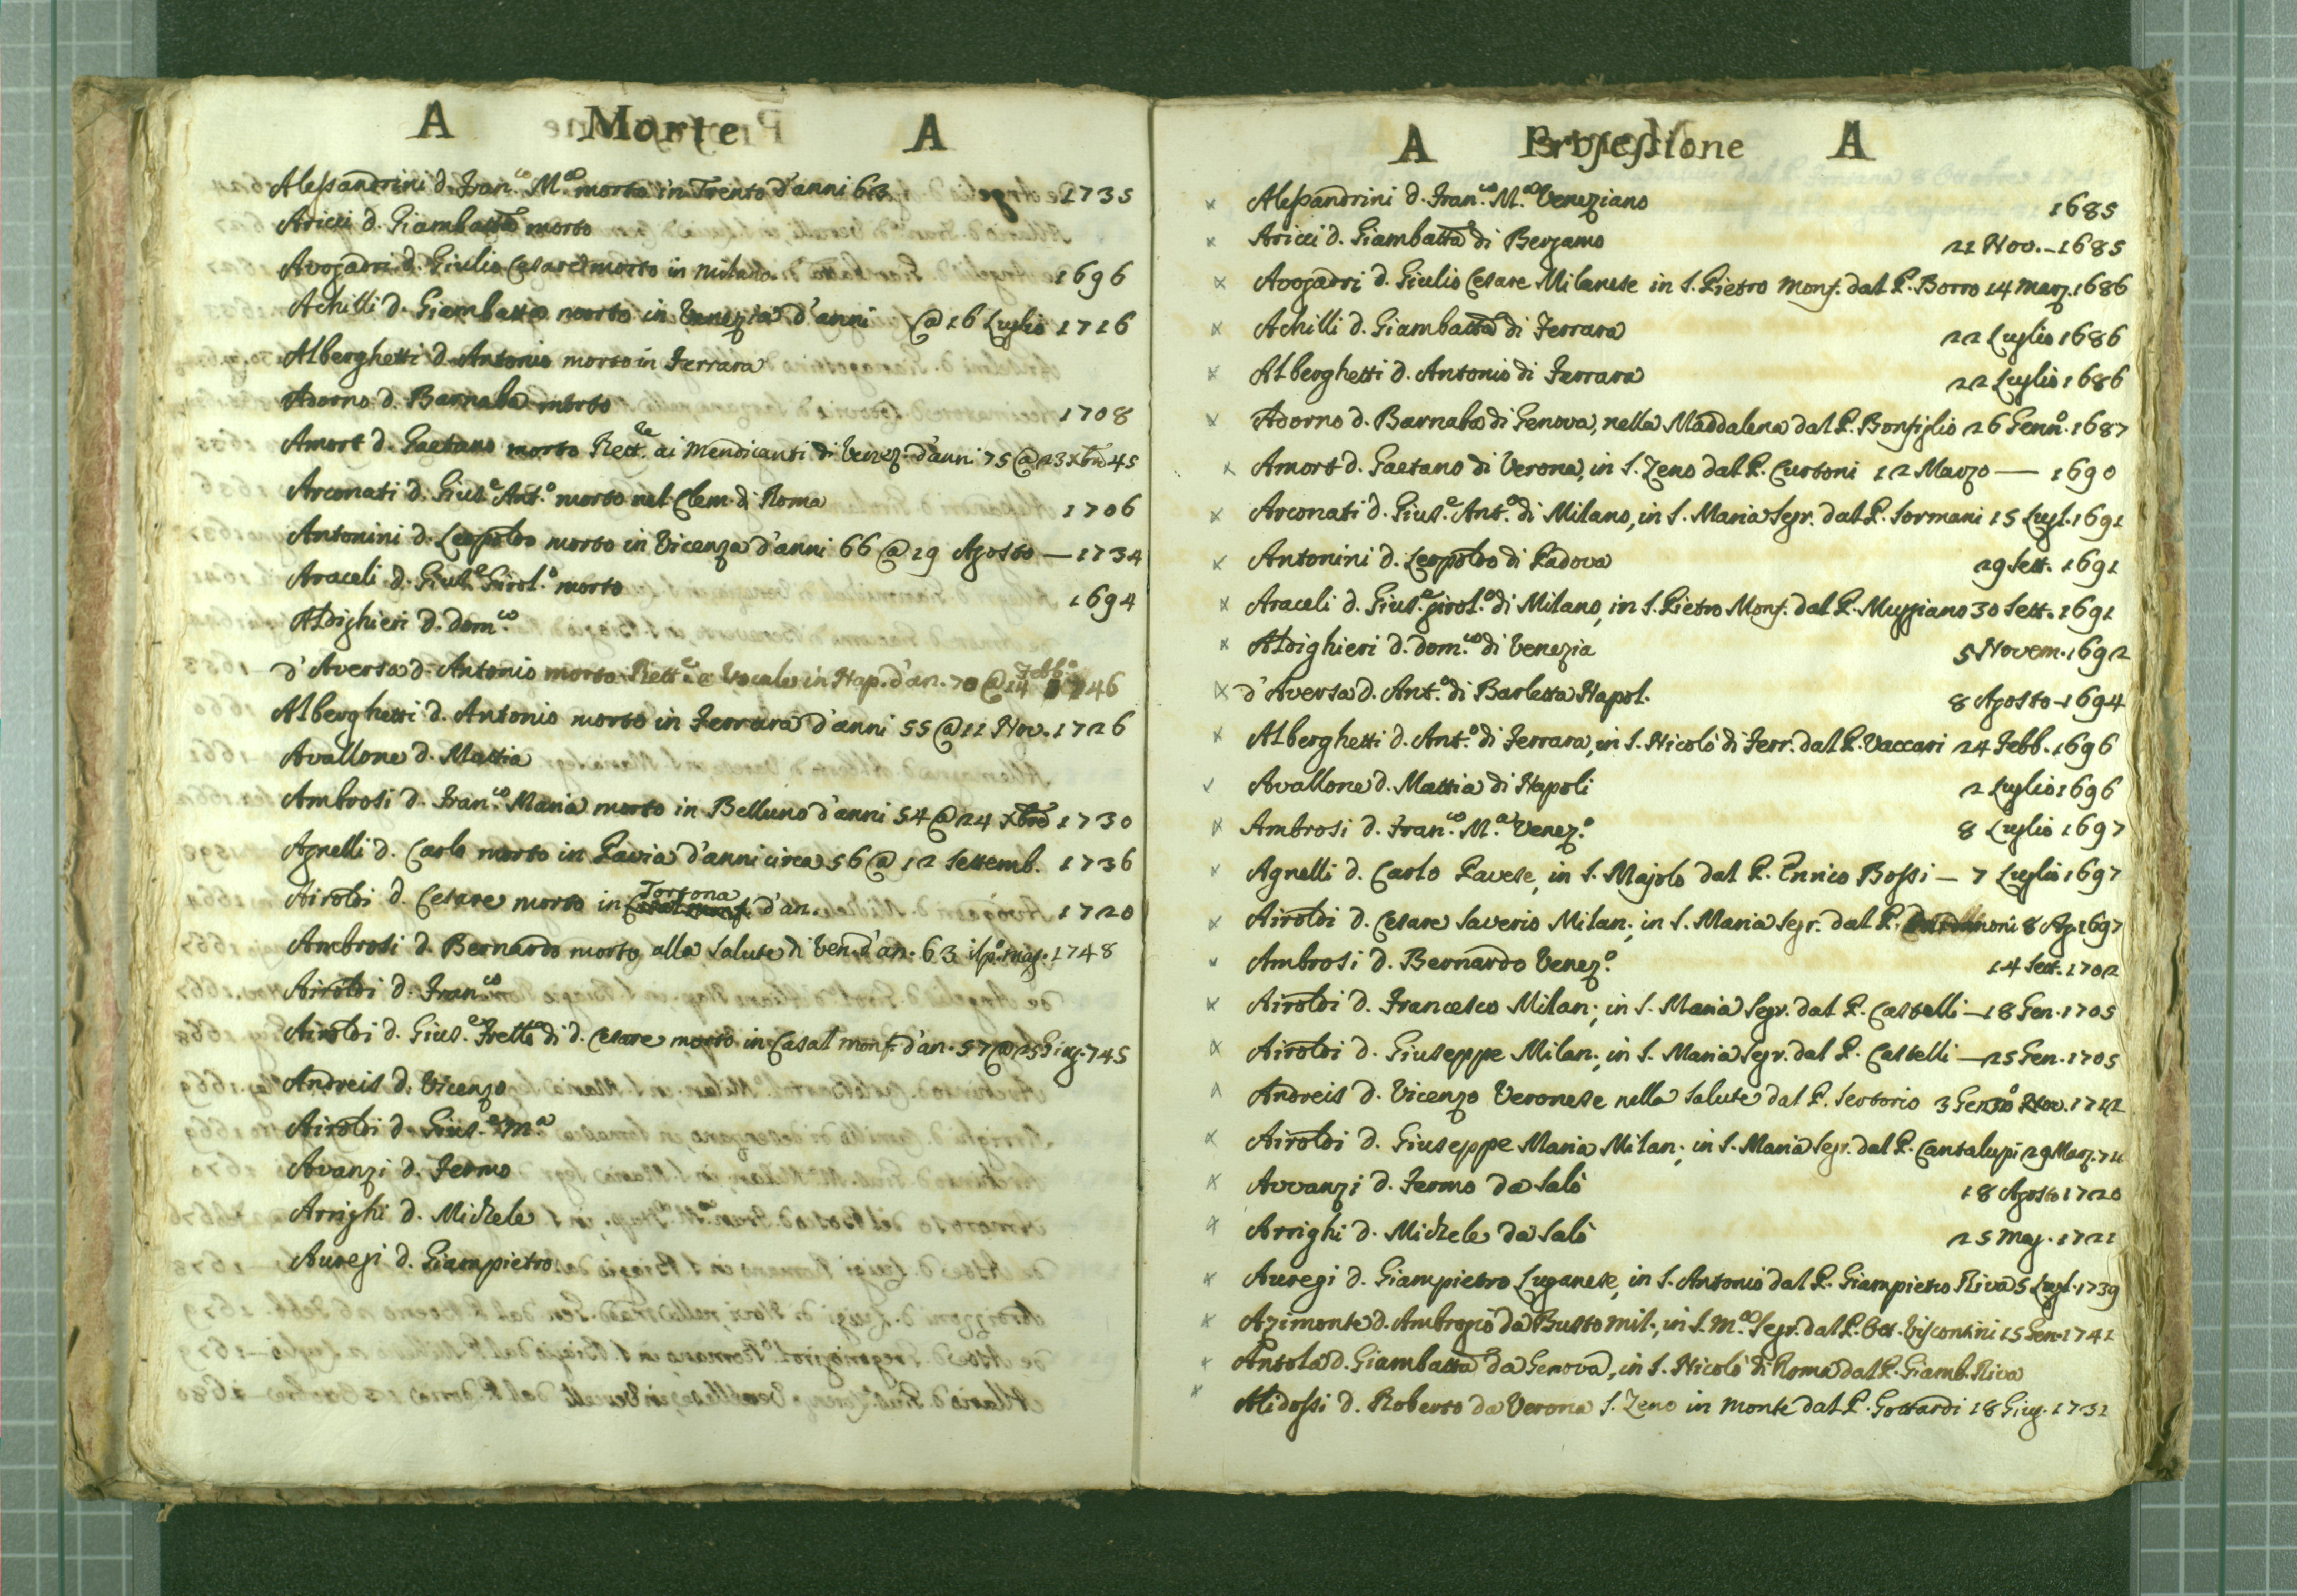 A Morte A
Alessandrini d. Fran.co M.a morto in Trento d'anni 63 1735
Aricci d. Giambatta morto
Avogadri d. Giulio Cesare morto in Milano 1696
Achilli d. Giambatta morto in Venezia d'anni @ 16 Luglio 1716
Alberghetti d. Antonio morto in Ferrara
Adorno d. Barnaba morto 1708
Amort d. Gaetano morto Rett.re ai Mendicanti di Venez. d'anni 75 @ 23 Xbre 45
Arconati d. Gius.e Ant.o morto nel Clem. di Roma 1706
Antonini d. Leopoldo morto in Vicenza d'anni 66 @ 29 Agosto — 1734
Araceli d. Gius.e Girol.o morto 1694
Aldighieri d. Dom.co
d'Aversa d. Antonio morto Rett.e e Vocale in Nap. d'an. 70 @ 14 Febb.o 46
Alberghetti d. Antonio morto in Ferrara d'anni 55 @ 11 Nov. 1726
Avallone d. Mattia
Ambrosi d. Fran.co Maria morto in Belluno d'anni 54 @ 24 Xbre 1730
Agnelli d. Carlo morto in Pavia d'anni circa 56 @ 12 Settemb. 1736
Airoldi d. Cesare morto in Tortona d'an. 1720
Ambrosi d. Bernardo morto alla Salute di Ven. d'an. 63 il p.o mag. 1748
Airoldi d. Fran.co
Airoldi d. Gius.e Frello di d. Cesare morto in Casal monf. d'an. 57 @ 25 Giug. 745
Andreis d. Vicenzo
Airoldi d. Gius.e M.a
Avanzi d. Fermo
Arrighi d. Michele
Auregi d. Giampietro
A Professione A
Alessandrini d. Fran.co M.a Veneziano 1685
Aricci d. Giambatta di Bergamo 21 Nov. — 1685
Avogadri d. Giulio Cesare Milanese in S. Pietro Monf. dal P. Borro 14 Marz. 1686
Achilli d. Giambatta di Ferrara 22 Luglio 1686
Alberghetti d. Antonio di Ferrara 22 Luglio 1686
Adorno d. Barnaba di Genova, nella Maddalena dal P. Bonfiglio 26 Genn.o 1687
Amort d. Gaetano di Verona, in S. Zeno dal P. Curtoni 12 Marzo — 1690
Arconati d. Gius.e Ant.o di Milano, in S. Maria Segr. dal P. Sormani 15 Lugl. 1691
Antonini d. Leopoldo di Padova 29 Sett. 1691
Araceli d. Gius.e girol.o di Milano, in S. Pietro Monf. dal P. Muggiano 30 Sett. 1691
Aldighieri d. Dom.co di Venezia 5 Novem. 1692
d'Aversa d. Ant.o di Barletta Napol. 8 Agosto 1694
Alberghetti d. Ant.o di Ferrara, in S. Nicolò di Ferr. dal P. Vaccari 24 Febb. 1696
Avallone d. Mattia di Napoli 2 Luglio 1696
Ambrosi d. Fran.co M.a Venez.o 8 Luglio 1697
Agnelli d. Carlo Pavese, in S. Majolo dal P. Enrico Bossi — 7 Luglio 1697
Airoldi d. Cesare Saverio Milan., in S. Maria Segr. dal P. 8 Ag. 1697
Ambrosi d. Bernardo Venez.o 14 Sett. 1702
Airoldi d. Francesco Milan., in S. Maria Segr. dal P. Castelli — 18 Gen. 1705
Airoldi d. Giuseppe Milan., in S. Maria Segr. dal P. Castelli — 25 Gen. 1705
Andreis d. Vicenzo Veronese nella Salute dal P. Sertorio 3
Airoldi d. Giuseppe Maria Milan., in S. Maria Segr. dal P. Cantalupi 29 Marz.
Avvanzi d. Fermo da Salò 18 Agosto 1720
Arrighi d. Michele da Salò 25 Mag. 1721
Auregi d. Giampietro Luganese, in S. Antonio dal P. Giampietro Riva 5 Lugl. 1739
Azimonte d. Ambrogio da Busto mil., in S. M.a Segr. dal P. Ott. Viscontini 15 Gen. 1741
Antola d. Giambatta da Genova, in S. Nicolò di Roma dal P. Giamb. Riva
Alidossi d. Roberto da Verona S. Zeno in Monte dal P. Gottardi 18 Giug. 1731